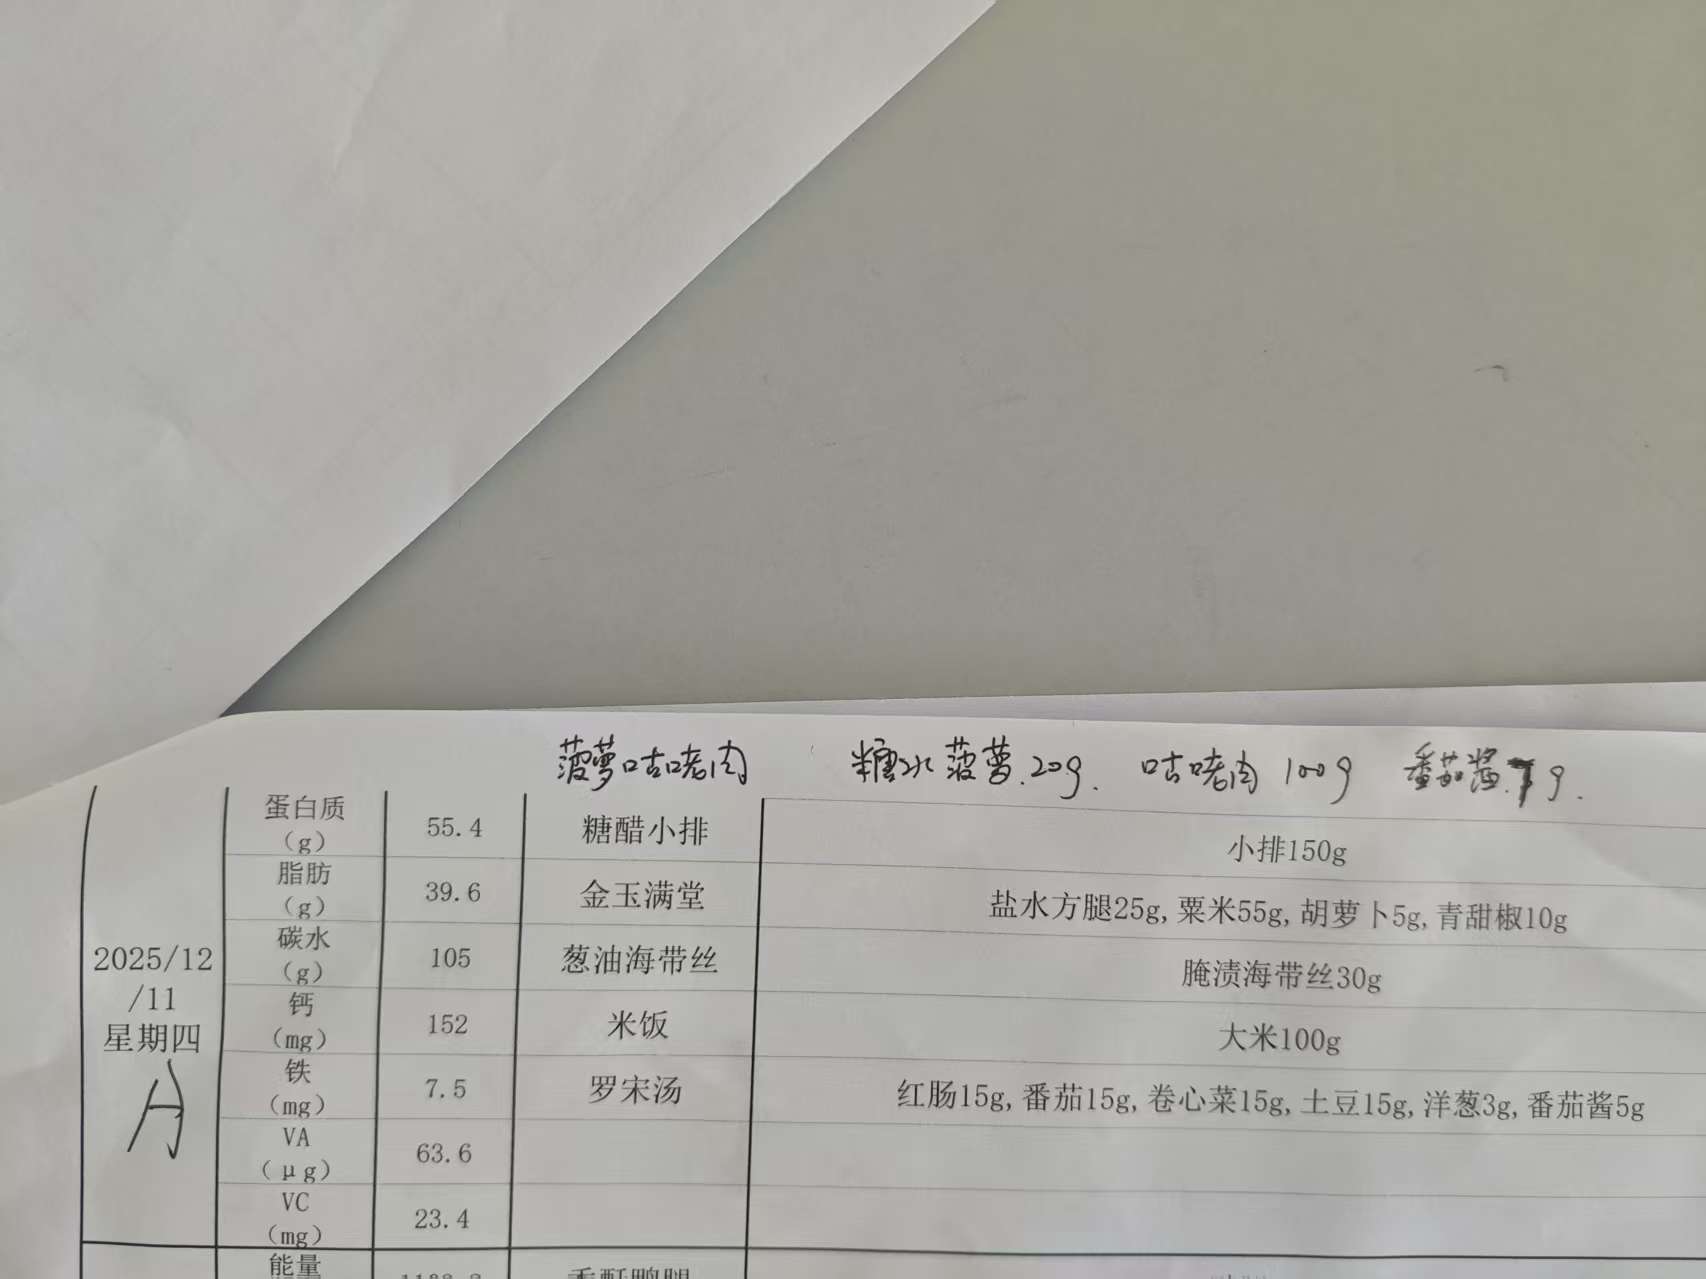 菠萝咕咾肉 糖水菠萝.20g. 咕咾肉 100g 番茄酱 g.
蛋白质(g) 55.4 糖醋小排 小排150g
脂肪(g) 39.6 金玉满堂 盐水方腿25g,粟米55g,胡萝卜5g,青甜椒10g
碳水(g) 105 葱油海带丝 腌渍海带丝30g
2025/12/11 星期四 A
钙(mg) 152 米饭 大米100g
铁(mg) 7.5 罗宋汤 红肠15g,番茄15g,卷心菜15g,土豆15g,洋葱3g,番茄酱5g
VA(μg) 63.6
VC(mg) 23.4
能量